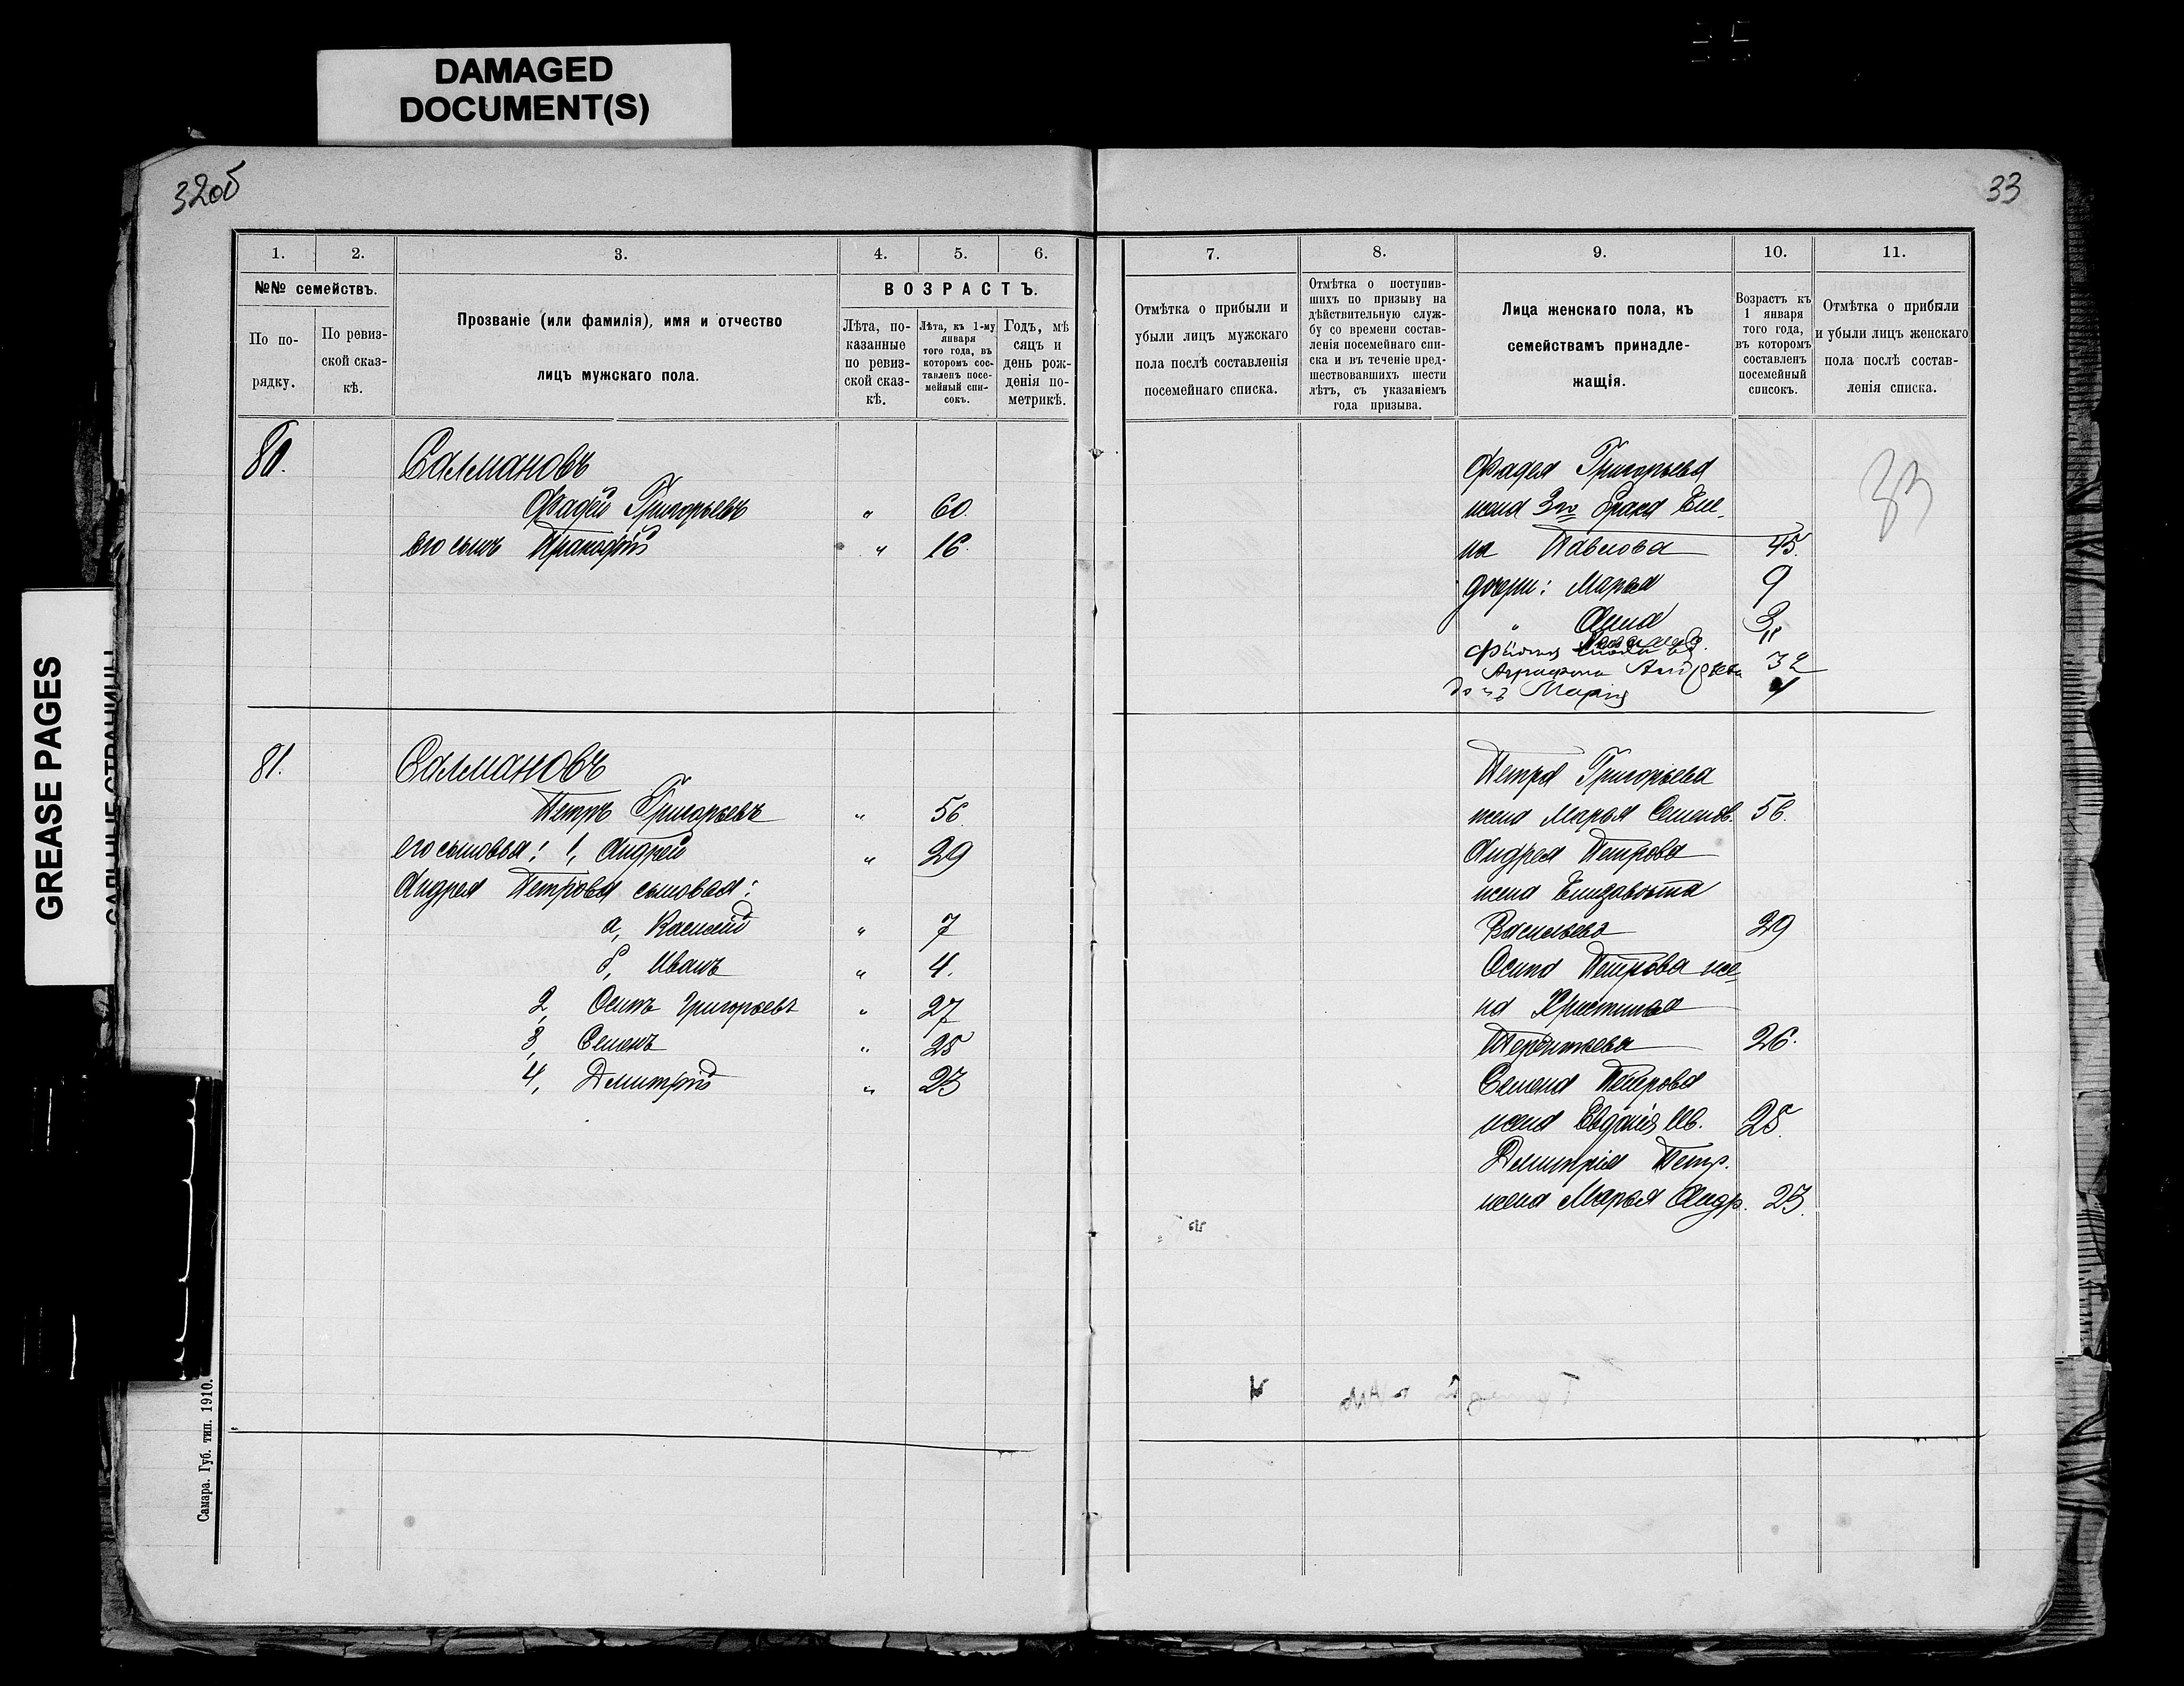 DAMAGED
DOCUMENT(S)
GREASE PAGES
32об
33
1.
2.
3.
4.
5.
6.
№№ семействъ.
По по-
рядку.
По ревиз-
ской сказ-
кѣ.
Прозваніе (или фамилія), имя и отчество
лицъ мужскаго пола.
ВОЗРАСТЪ.
Лѣта, по-
казанные
по ревиз-
ской сказ-
кѣ.
Лѣта, къ 1-му
января
того года, въ
которомъ сос-
тавленъ посе-
мейный спи-
сокъ.
Годъ, мѣ
сяцъ и
день рож-
денія по-
метрикѣ.
80.
Салмановъ
Фадей Григорьевъ " 60
его сынъ Пракофій " 16.
81.
Салмановъ
Петръ Григорьевъ " 56
его сыновья: 1, Андрей " 29
Андрея Петрова сыновья:
а, Василій " 7
б, Иванъ " 4.
2, Осипъ Григорьевъ " 27
3, Семенъ " 25
4, Дмитрій " 23
Самара. Губ. тип. 1910.
7.
8.
9.
10.
11.
Отмѣтка о прибыли и
убыли лицъ мужскаго
пола послѣ составленія
посемейнаго списка.
Отмѣтка о поступив-
шихъ по призыву на
дѣйствительную служ-
бу со времени состав-
ленія посемейнаго спи-
ска и въ теченіе пред-
шествовавшихъ шести
лѣтъ, съ указаніемъ
года призыва.
Лица женскаго пола, къ
семействамъ принадле-
жащія.
Возрастъ къ
1 января
того года,
въ которомъ
составленъ
посемейный
списокъ.
Отмѣтка о прибыли
и убыли лицъ женскаго
пола послѣ состав-
ленія списка.
33
Фадея Григорьева
жена 3го брака Еле-
на Павлова 45.
дочери: Марья 9
" Анна 3
Аграфена Андреева 32
дочь Марія
Петра Григорьева
жена Марья Семенов. 56.
Андрея Петрова
жена Елизавета
Васильева 29
Осипа Петрова же-
на Христинья
Терентьева 26.
Семена Петрова
жена Евдокія Ив. 25.
Дмитрія Петр.
жена Марья Андр. 23.